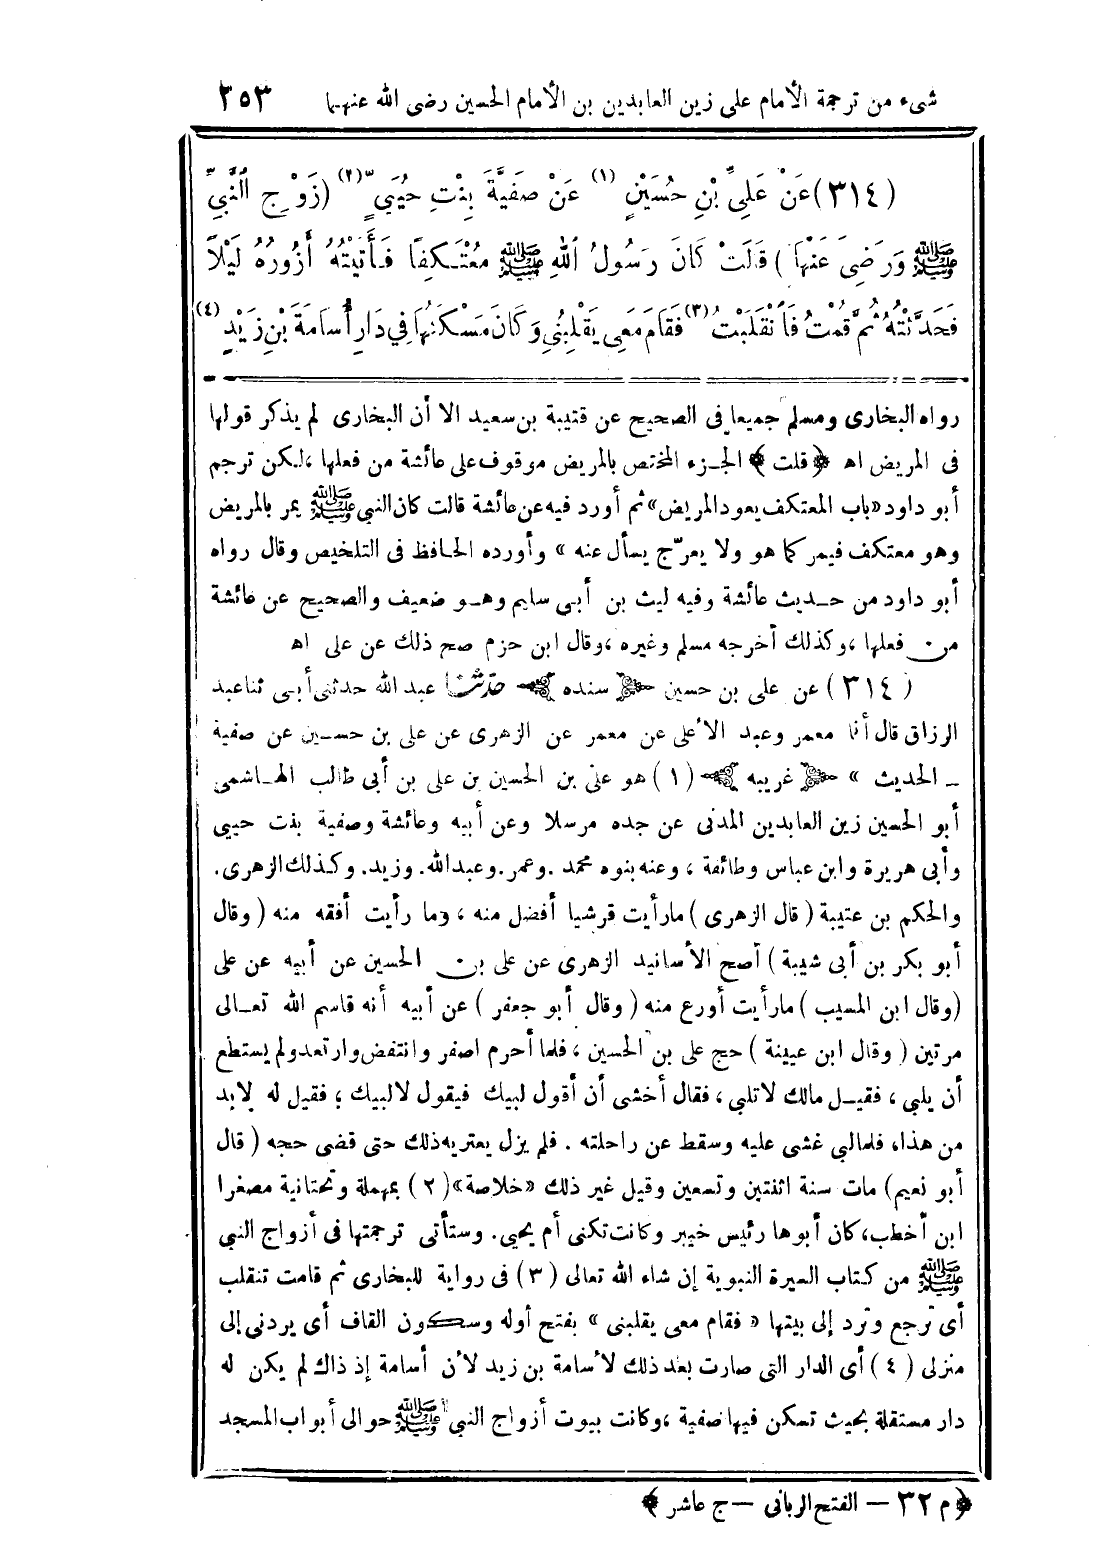 شىء من ترجمة الأمام على زين العابدين بن الأمام الحسين رضى الله عنهما ٢٥٣
(٣١٤) عَنْ عَلِىِّ بْنِ حُسَيْنٍ (١) عَنْ صَفِيَّةَ بِنْتِ حُيَىٍّ (٢) (زَوْجِ النَّبِىِّ
ﷺ وَرَضِىَ عَنْهَا) قَالَتْ كَانَ رَسُولُ اللهِ ﷺ مُعْتَكِفًا فَأَتَيْتُهُ أَزُورُهُ لَيْلًا
فَحَدَّثْتُهُ ثُمَّ قُمْتُ فَانْقَلَبْتُ (٣) فَقَامَ مَعِى يَقْلِبُنِى وَكَانَ مَسْكَنُهَا فِي دَارِ أُسَامَةَ بْنِ زَيْدٍ (٤)
رواه البخارى ومسلم جميعا فى الصحيح عن قتيبة بن سعيد الا أن البخارى لم يذكر قولها
فى المريض اه ﴿قلت﴾ الجزء المختص بالمريض موقوف على عائشة من فعلها ،لكن ترجم
أبو داود «باب المعتكف يعود المريض» ثم أورد فيه عن عائشة قالت كان النبي ﷺ يمر بالمريض
وهو معتكف فيمر كما هو ولا يعرّج يسأل عنه » وأورده الحافظ فى التلخيص وقال رواه
أبو داود من حديث عائشة وفيه ليث بن أبى سليم وهو ضعيف والصحيح عن عائشة
من فعلها ،وكذلك أخرجه مسلم وغيره ،وقال ابن حزم صح ذلك عن على اه
(٣١٤) عن على بن حسين ﴿سنده﴾ حدثنا عبد الله حدثنى أبى ثنا عبد
الرزاق قال أنا معمر وعبد الأعلى عن معمر عن الزهرى عن على بن حسين عن صفية
ـ الحديث » ﴿غريبه﴾ (١) هو على بن الحسين بن على بن أبى طالب الهاشمى
أبو الحسين زين العابدين المدنى عن جده مرسلا وعن أبيه وعائشة وصفية بنت حيي
وأبى هريرة وابن عباس وطائفة ، وعنه بنوه محمد .وعمر .وعبدالله. وزيد. وكذلك الزهرى.
والحكم بن عتيبة ( قال الزهرى ) مارأيت قرشيا أفضل منه ، وما رأيت أفقه منه ( وقال
أبو بكر بن أبى شيبة ) أصح الأسانيد الزهرى عن على بن الحسين عن أبيه عن على
(وقال ابن المسيب ) مارأيت أورع منه ( وقال أبو جعفر ) عن أبيه أنه قاسم الله تعالى
مرتين ( وقال ابن عيينة ) حج على بن الحسين ، فلما أحرم اصفر وانتفض وارتعد ولم يستطع
أن يلبي ، فقيل مالك لاتلبي ، فقال أخشى أن أقول لبيك فيقول لا لبيك ؛ فقيل له لابد
من هذا، فلما لبى غشى عليه وسقط عن راحلته . فلم يزل يعتريه ذلك حتى قضى حجه ( قال
أبو نعيم) مات سنة اثنتين وتسعين وقيل غير ذلك «خلاصة» (٢) بمهملة وتحتانية مصغرا
ابن أخطب، كان أبوها رئيس خيبر وكانت تكنى أم يحيى. وستأتى ترجمتها فى أزواج النبي
ﷺ من كتاب السيرة النبوية إن شاء الله تعالى (٣) فى رواية للبخارى ثم قامت تنقلب
أى ترجع وترد إلى بيتها « فقام معى يقلبنى » بفتح أوله وسكون القاف أى يردنى إلى
منزلى (٤) أى الدار التى صارت بعد ذلك لأسامة بن زيد لأن أسامة إذ ذاك لم يكن له
دار مستقلة بحيث تسكن فيها صفية ،وكانت بيوت أزواج النبي ﷺ حوالى أبواب المسجد
﴿م ٣٢ – الفتح الربانى – ج عاشر ﴾